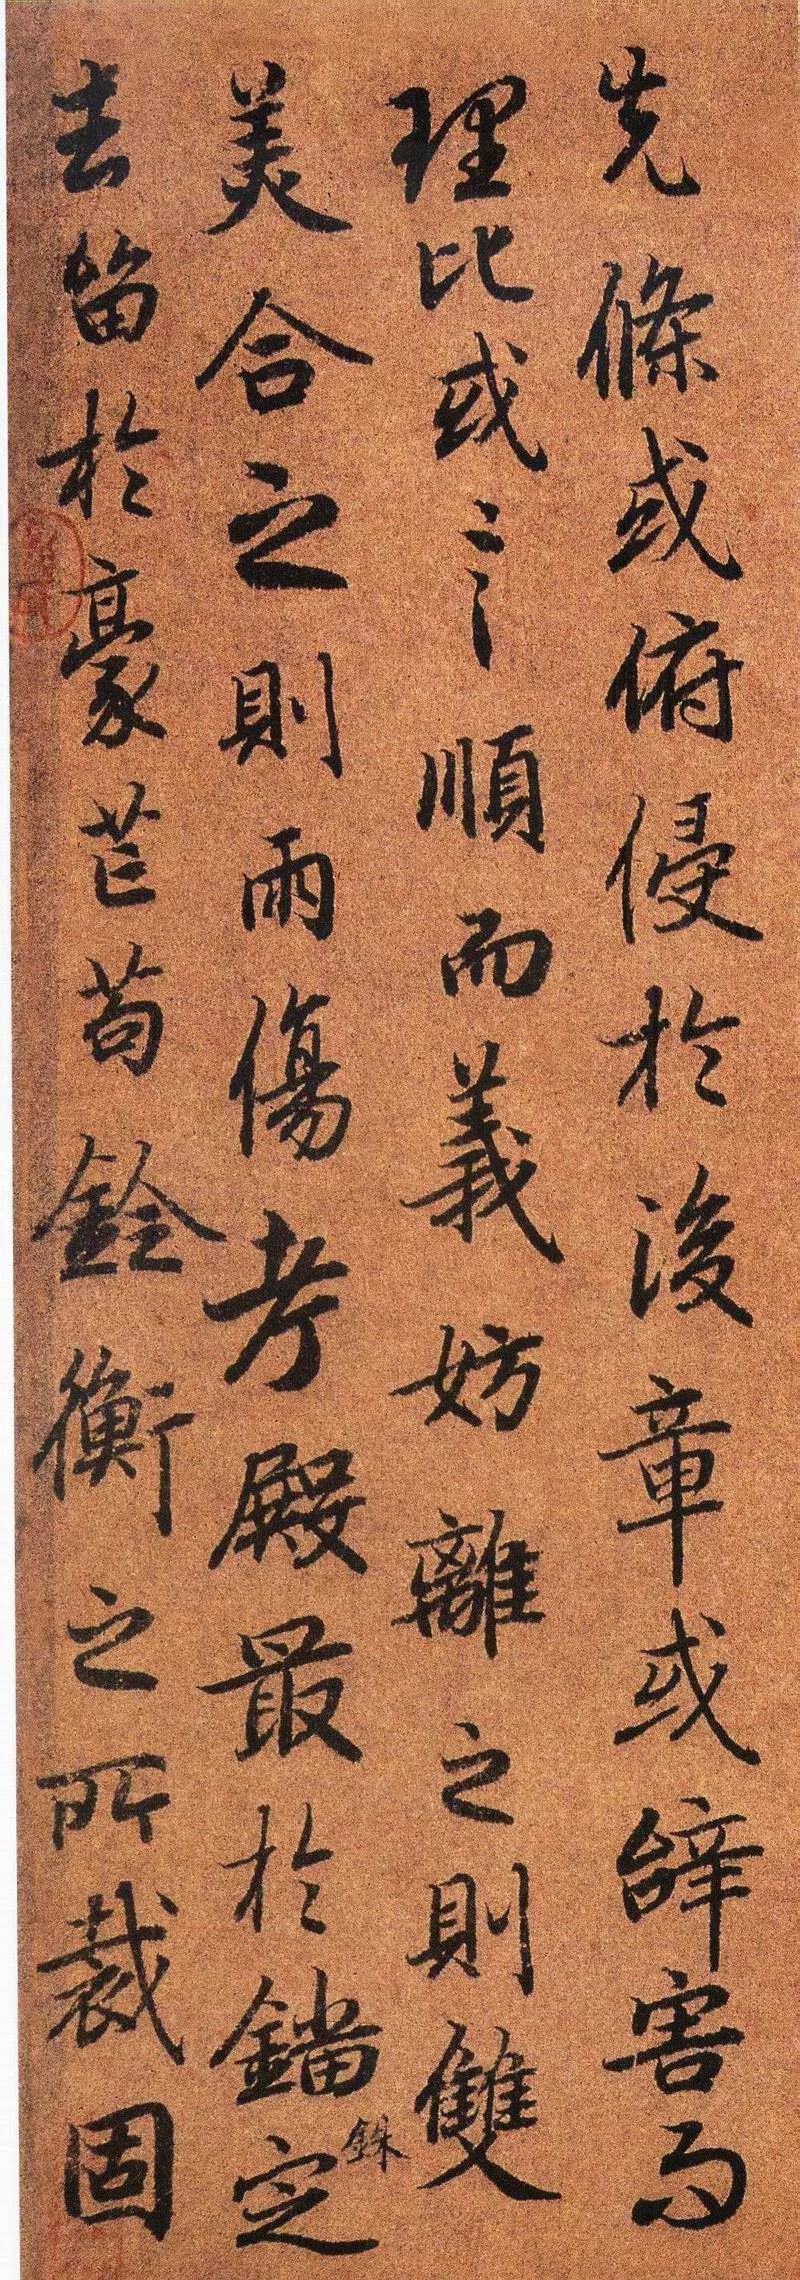 先條或俯侵於後章或辝害而
理比或言順而義妨離之則雙
美合之則兩傷考殿最於錙銖定
去留於豪芒苟銓衡之所裁固